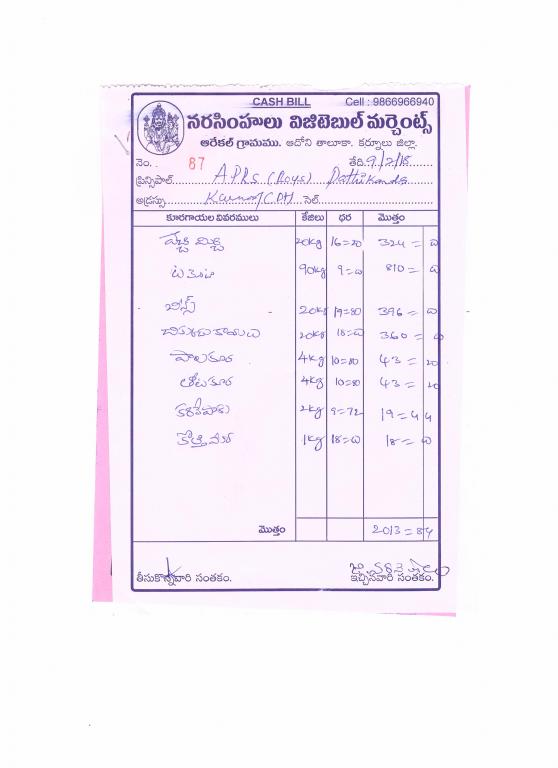 CASH BILL Cell : 9866966940
నరసింహలు విజిటెబుల్ మర్చెంట్స్
ఆరేకల్ గ్రామము. ఆదోని తాలూకా. కర్నూలు జిల్లా.
నెం. 87 తేది. 9/2/18
ప్రిన్సిపాల్ APRS (Boys)
అడ్రస్సు సెల్
కూరగాయల వివరములు కేజిలు ధర మొత్తం
పచ్చి మిర్చి 20kg 16=20 324=00
టమోటా 90kg 9=00 810=00
బీన్స్ 20kg 19=80 396=00
20kg 18=00 360=00
పాలకూర 4kg 10=80 43=20
తోటకూర 4kg 10=80 43=20
కరివేపాకు 2kg 9=72 19=44
కొత్తిమీర 1kg 18=00 18=00
మొత్తం 2013=84
తీసుకొన్నవారి సంతకం. ఇచ్చినవారి సంతకం.